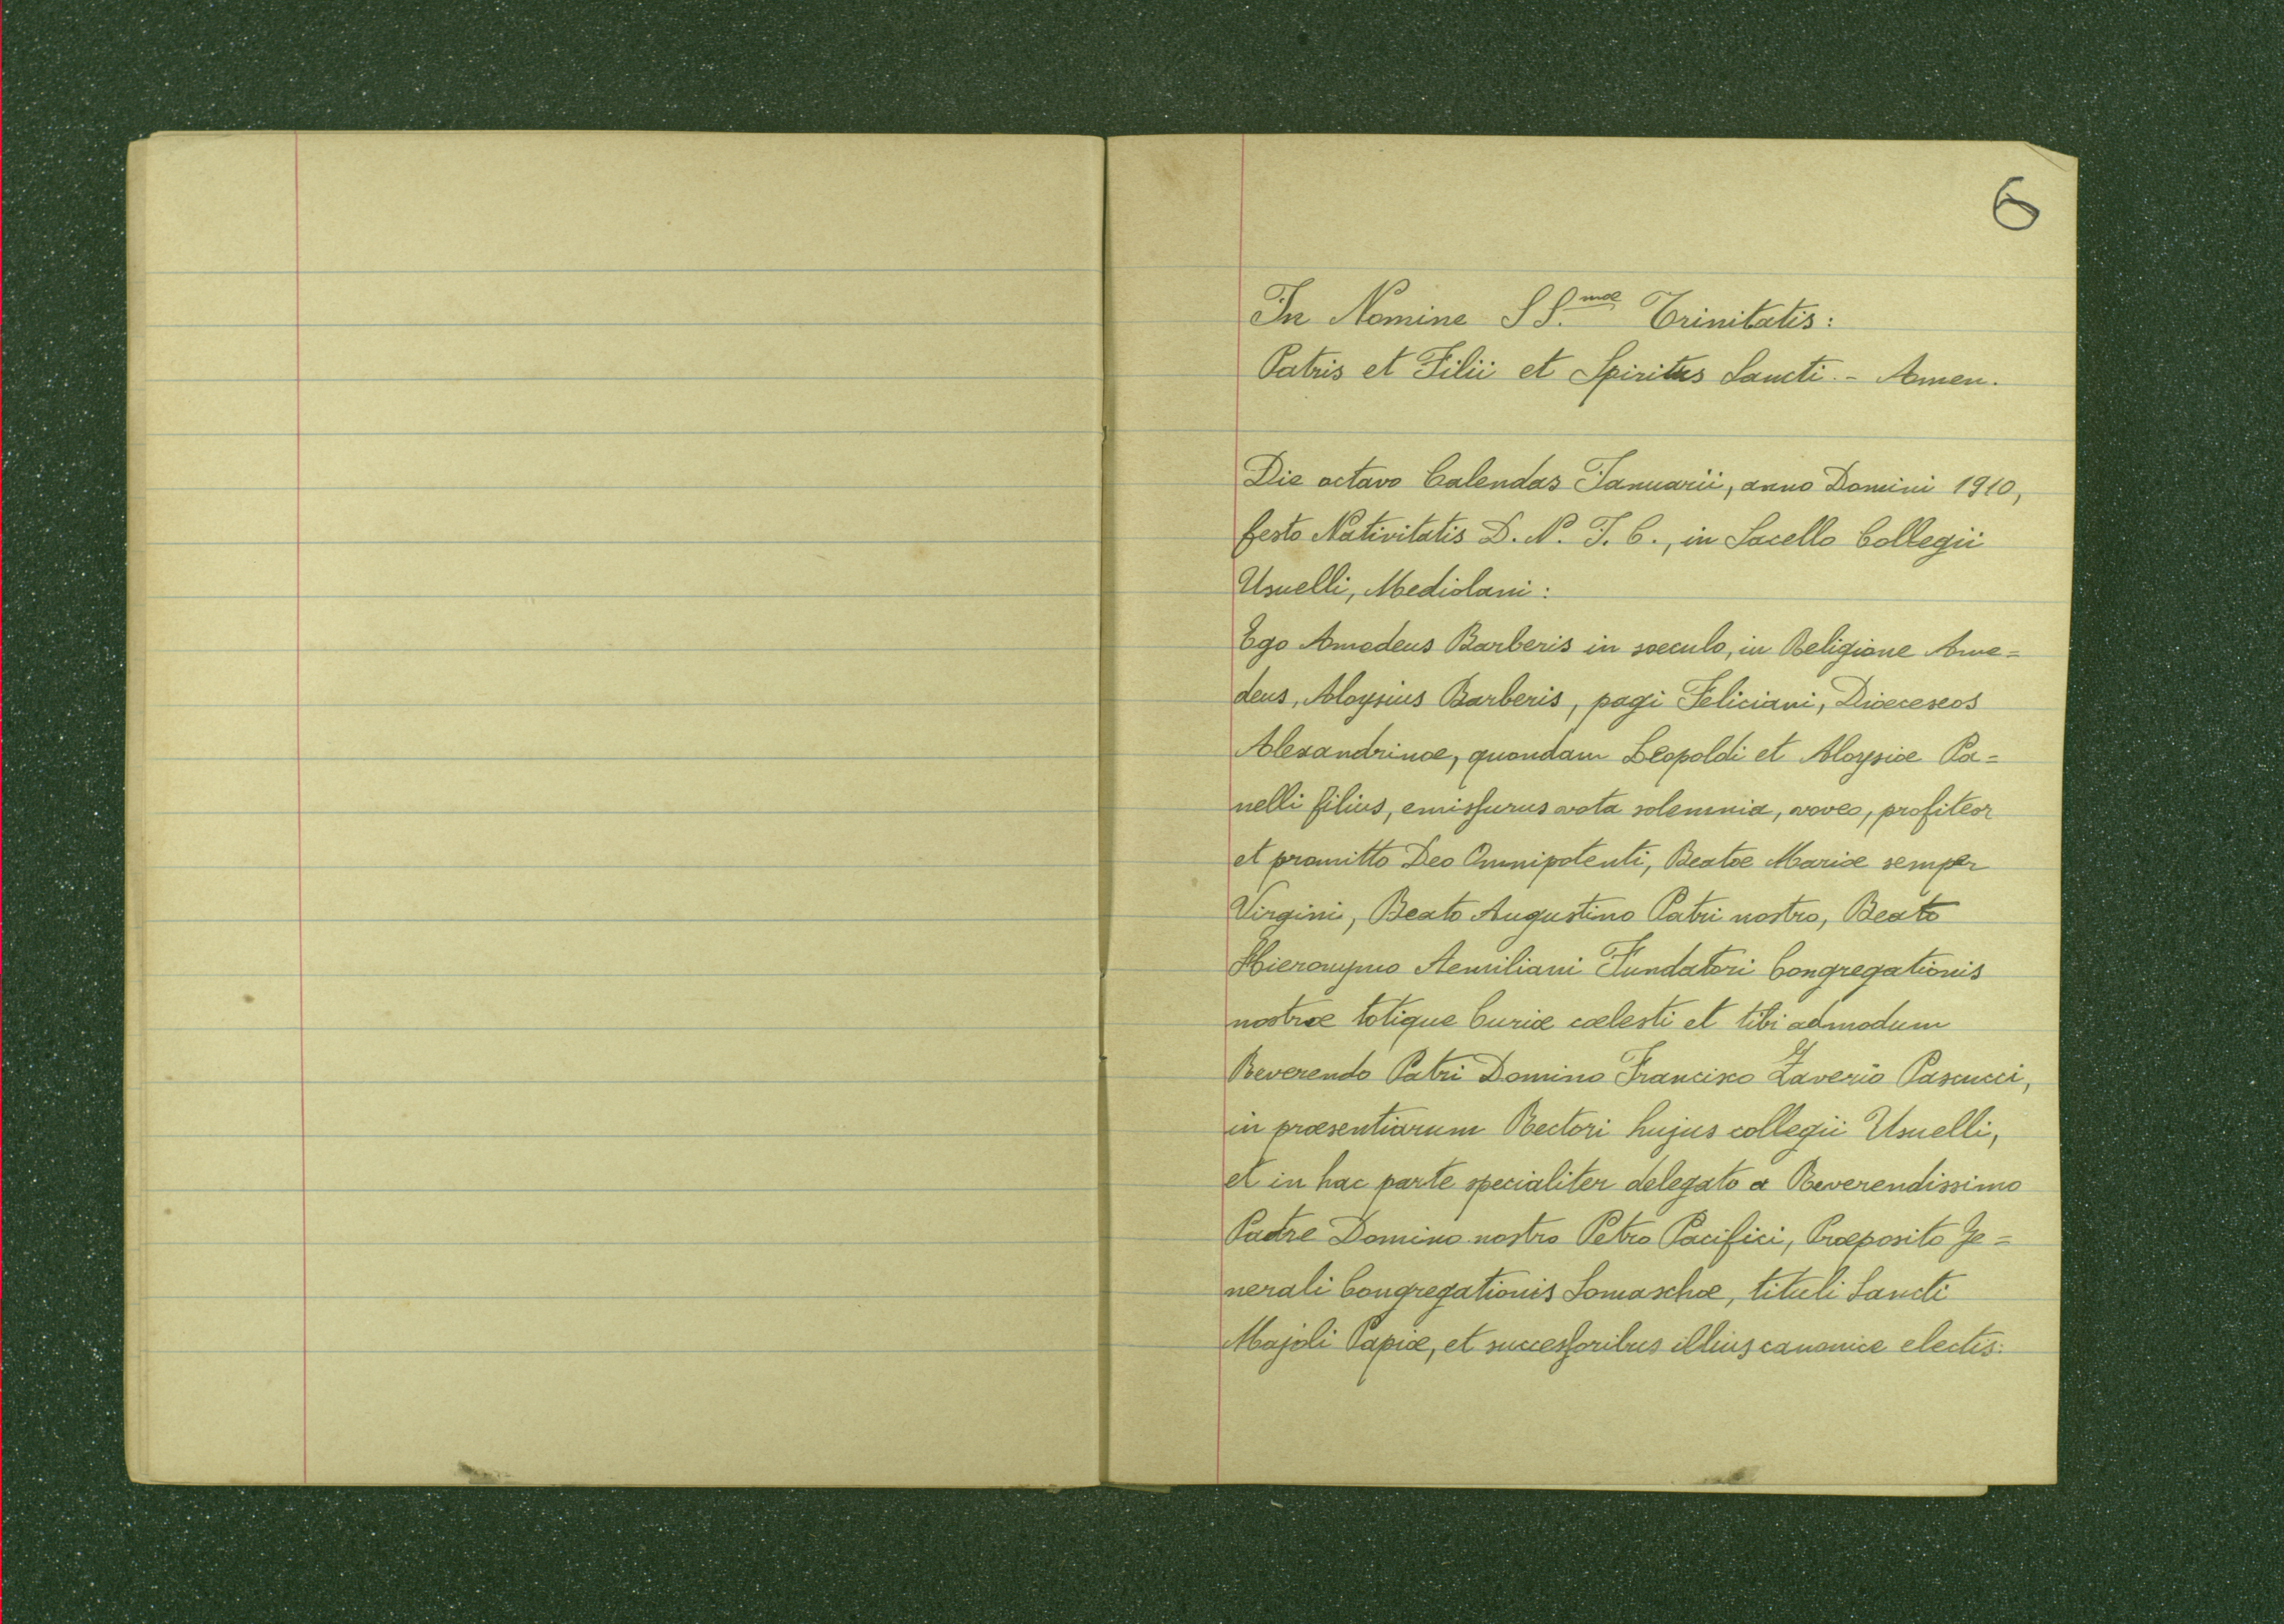 6
In Nomine SS.mæ Trinitatis:
Patris et Filii et Spiritus Sancti. - Amen.
Die octavo Calendas Januarii, anno Domini 1910,
festo Nativitatis D. N. J. C., in Sacello Collegii
Usuelli, Mediolani:
Ego Amedeus Barberis in sæculo, in Religione Ame=
deus, Aloysius Barberis, pagi Feliciani, Dioeceseos
Alexandrinæ, quondam Leopoldi et Aloysiæ Pa=
nelli filius, emissurus vota solemnia, voveo, profiteor
et promitto Deo Omnipotenti, Beatæ Mariæ semper
Virgini, Beato Augustino Patri nostro, Beato
Hieronymo Aemiliani Fundatori Congregationis
nostræ totique Curiæ cælesti et tibi admodum
Reverendo Patri Domino Francisco Zaverio Pascucci,
in præsentiarum Rectori hujus collegii Usuelli,
et in hac parte specialiter delegato a Reverendissimo
Padre Domino nostro Petro Pacifici, Præposito Ge=
nerali Congregationis Somaschæ, tituli Sancti
Majoli Papiæ, et successoribus illius canonice electis: